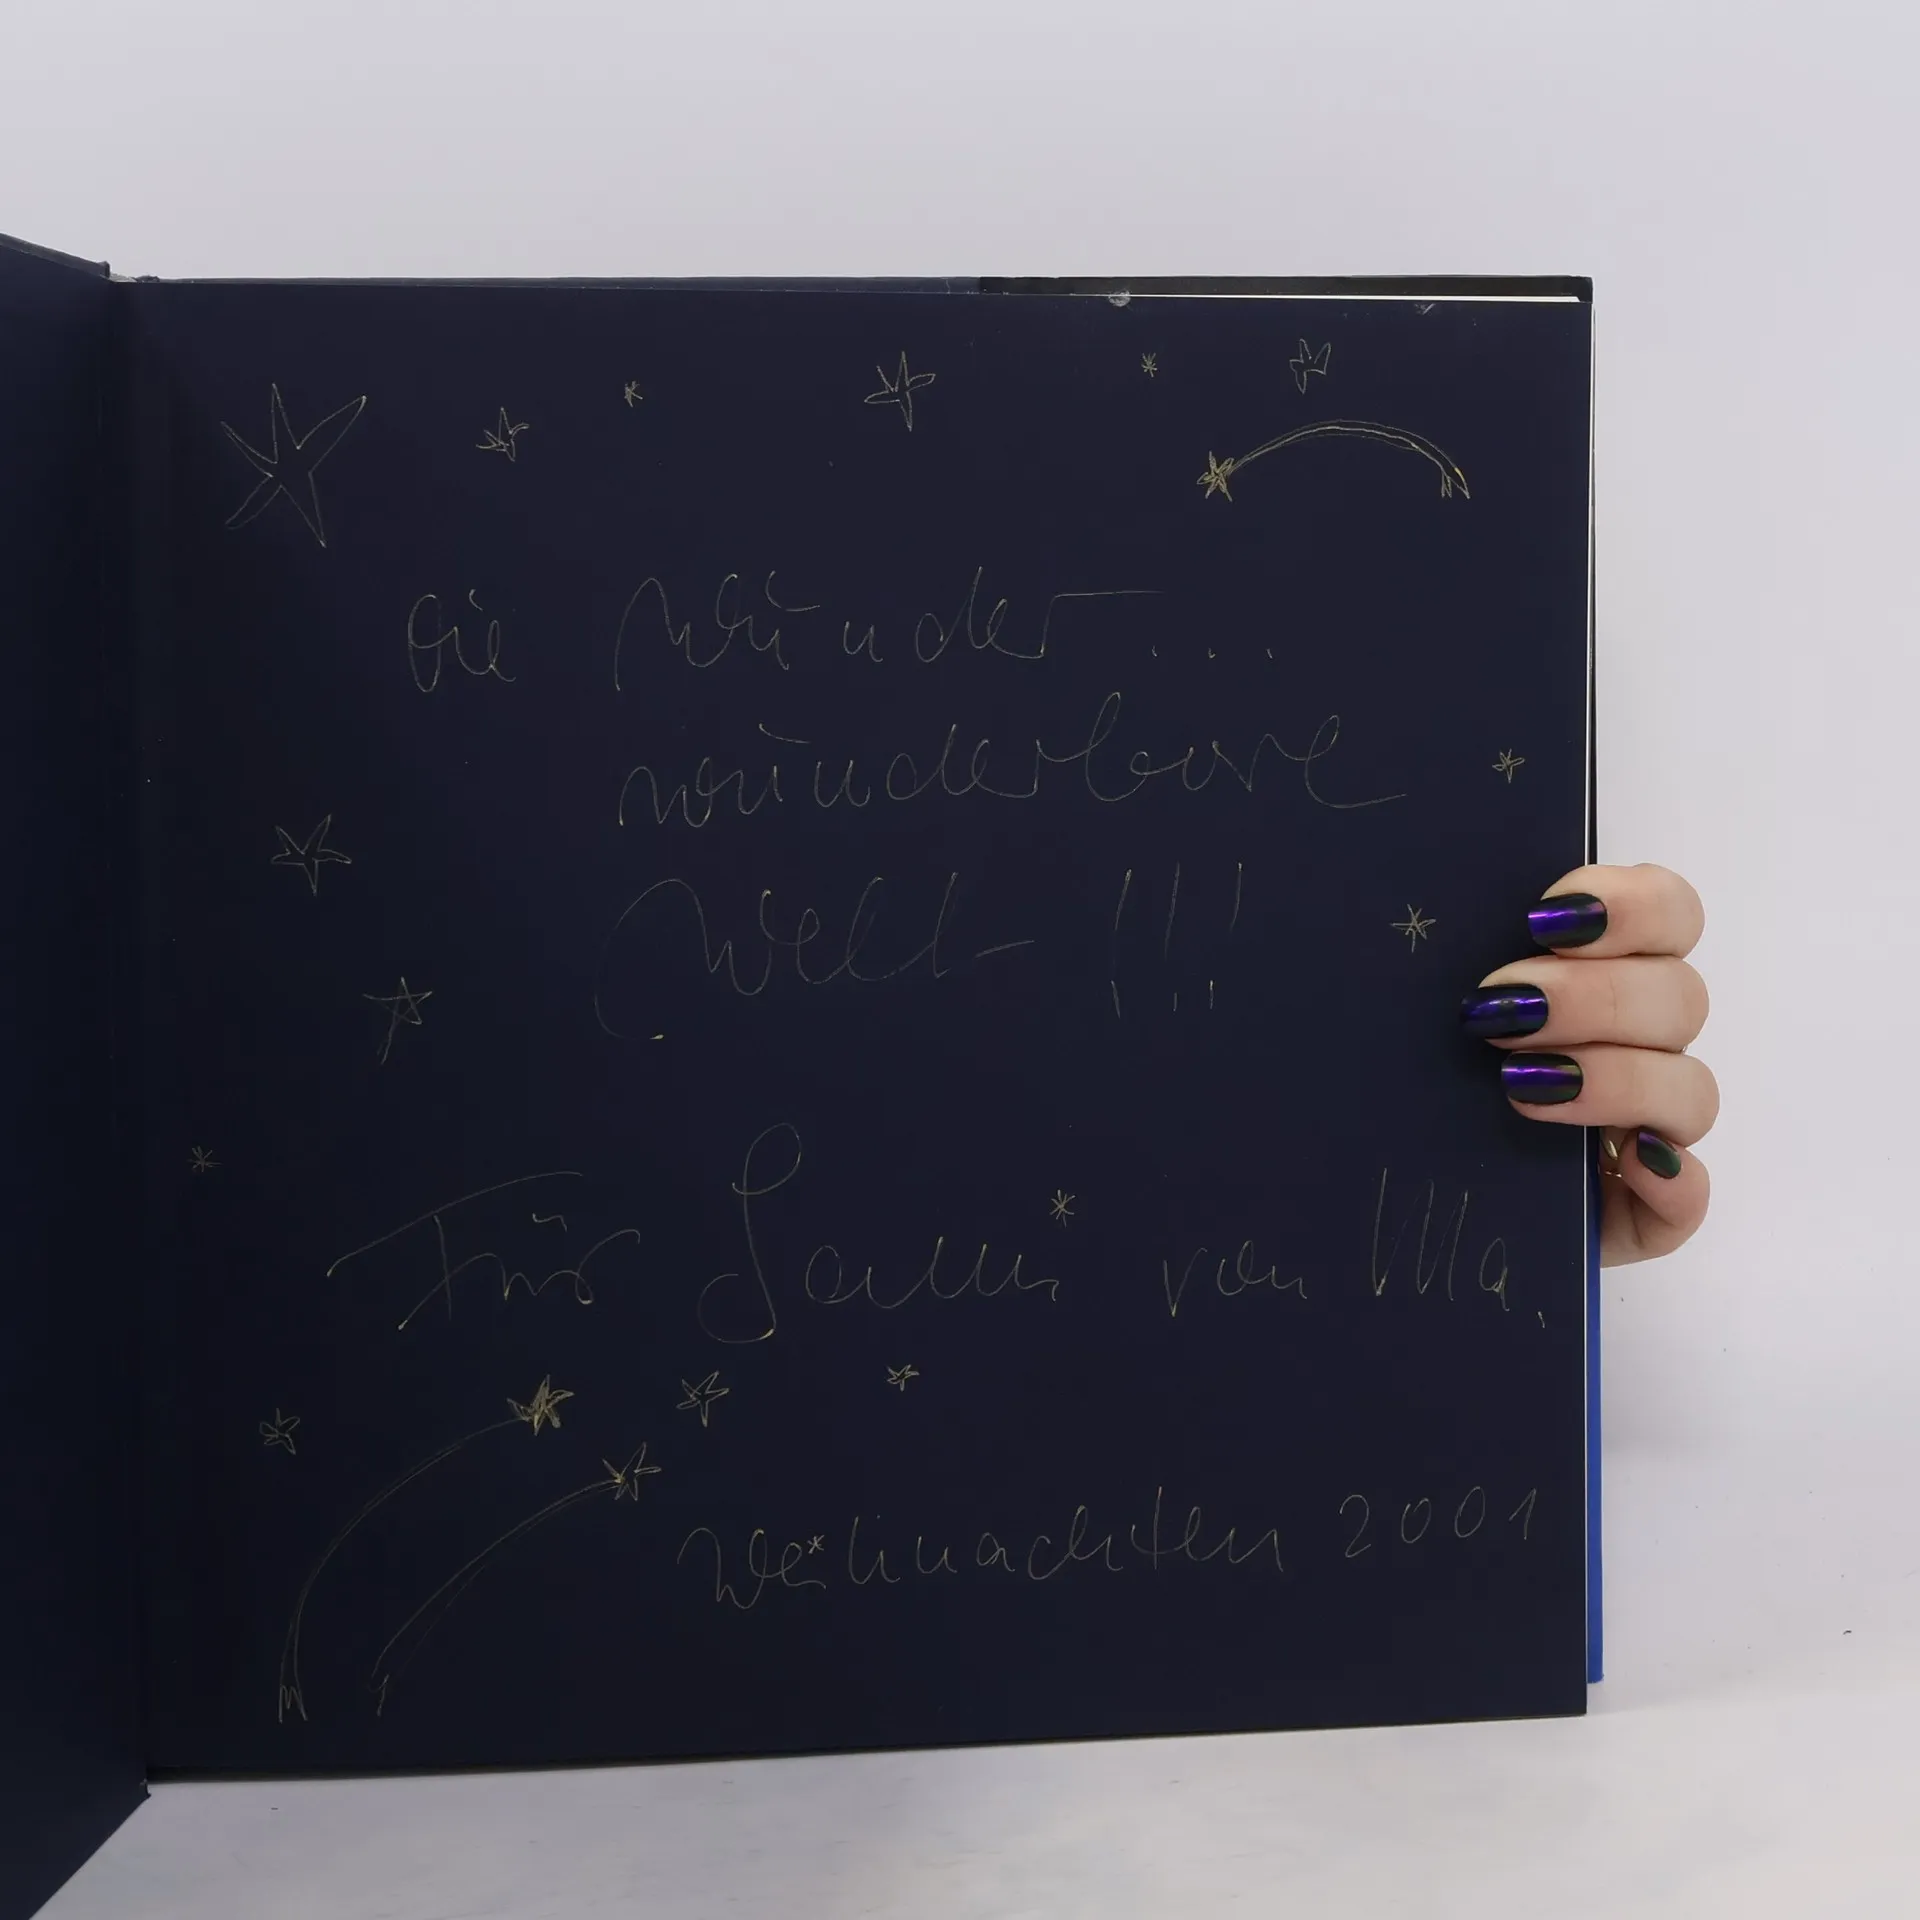 die wunder...
wunderbare
Welt !!!
Für Sami von Ma.
Weihnachten 2001